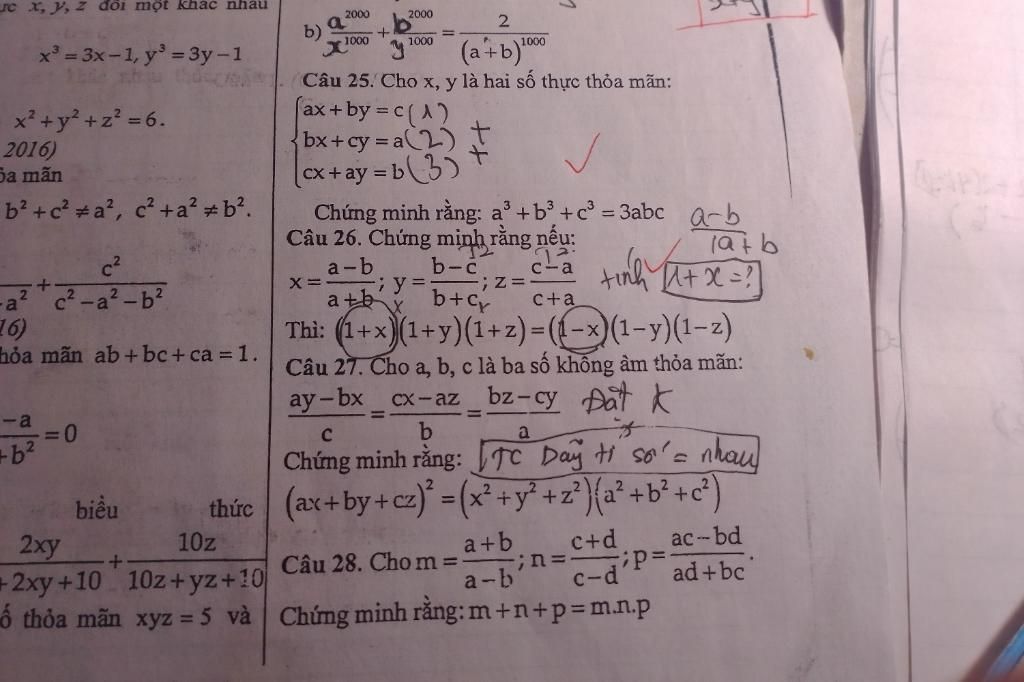 x, y, z đôi một khác nhau
x³ = 3x − 1, y³ = 3y − 1
x² + y² + z² = 6.
2016)
mãn
b² + c² ≠ a², c² + a² ≠ b².
+ c²/(c² − a² − b²)
16)
thỏa mãn ab + bc + ca = 1.
= 0
biểu thức
2xy/(+ 2xy + 10) + 10z/(10z + yz + 10)
ố thỏa mãn xyz = 5 và
b) a²⁰⁰⁰/x¹⁰⁰⁰ + b²⁰⁰⁰/y¹⁰⁰⁰ = 2/(a + b)¹⁰⁰⁰
Câu 25. Cho x, y là hai số thực thỏa mãn:
ax + by = c (1)
bx + cy = a (2) +
cx + ay = b (3) +
Chứng minh rằng: a³ + b³ + c³ = 3abc
a-b
1a+b
Câu 26. Chứng minh rằng nếu:
x = (a − b)/(a + b); y = (b − c)/(b + c); z = (c − a)/(c + a) tính 1+x=?
Thì: (1 + x)(1 + y)(1 + z) = (1 − x)(1 − y)(1 − z)
Câu 27. Cho a, b, c là ba số không âm thỏa mãn:
(ay − bx)/c = (cx − az)/b = (bz − cy)/a Đặt k
Chứng minh rằng: TC Dãy tỉ số = nhau
(ax + by + cz)² = (x² + y² + z²)(a² + b² + c²)
Câu 28. Cho m = (a + b)/(a − b); n = (c + d)/(c − d); p = (ac − bd)/(ad + bc).
Chứng minh rằng: m + n + p = m.n.p